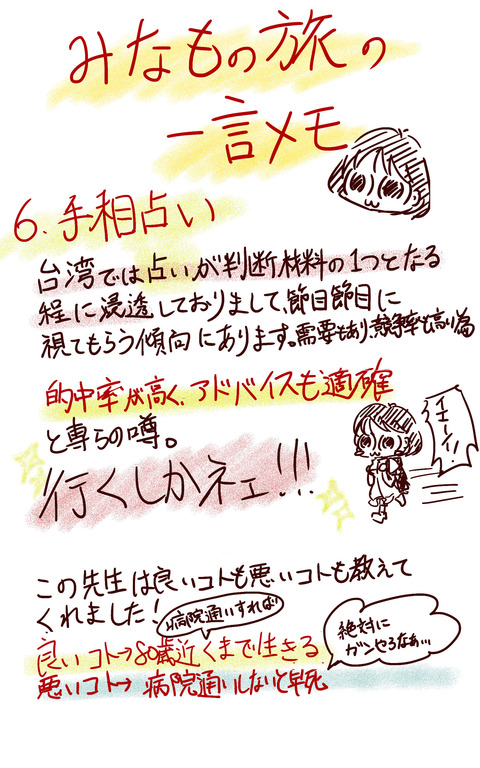 みなもの旅の
一言メモ
6.手相占い
台湾では占いが判断材料の1つとなる
程に浸透しておりまして、節目節目に
視てもらう傾向にあります。需要もあり、競争率も高い為
的中率が高く、アドバイスも適確
と専らの噂。
イエーイ!!
行くしかネェ!!!
この先生は良いコトも悪いコトも教えて
くれました!
病院通いすれば
絶対に
ガンやろなぁ…
良いコト→80歳近くまで生きる
悪いコト→病院通いしないと早死